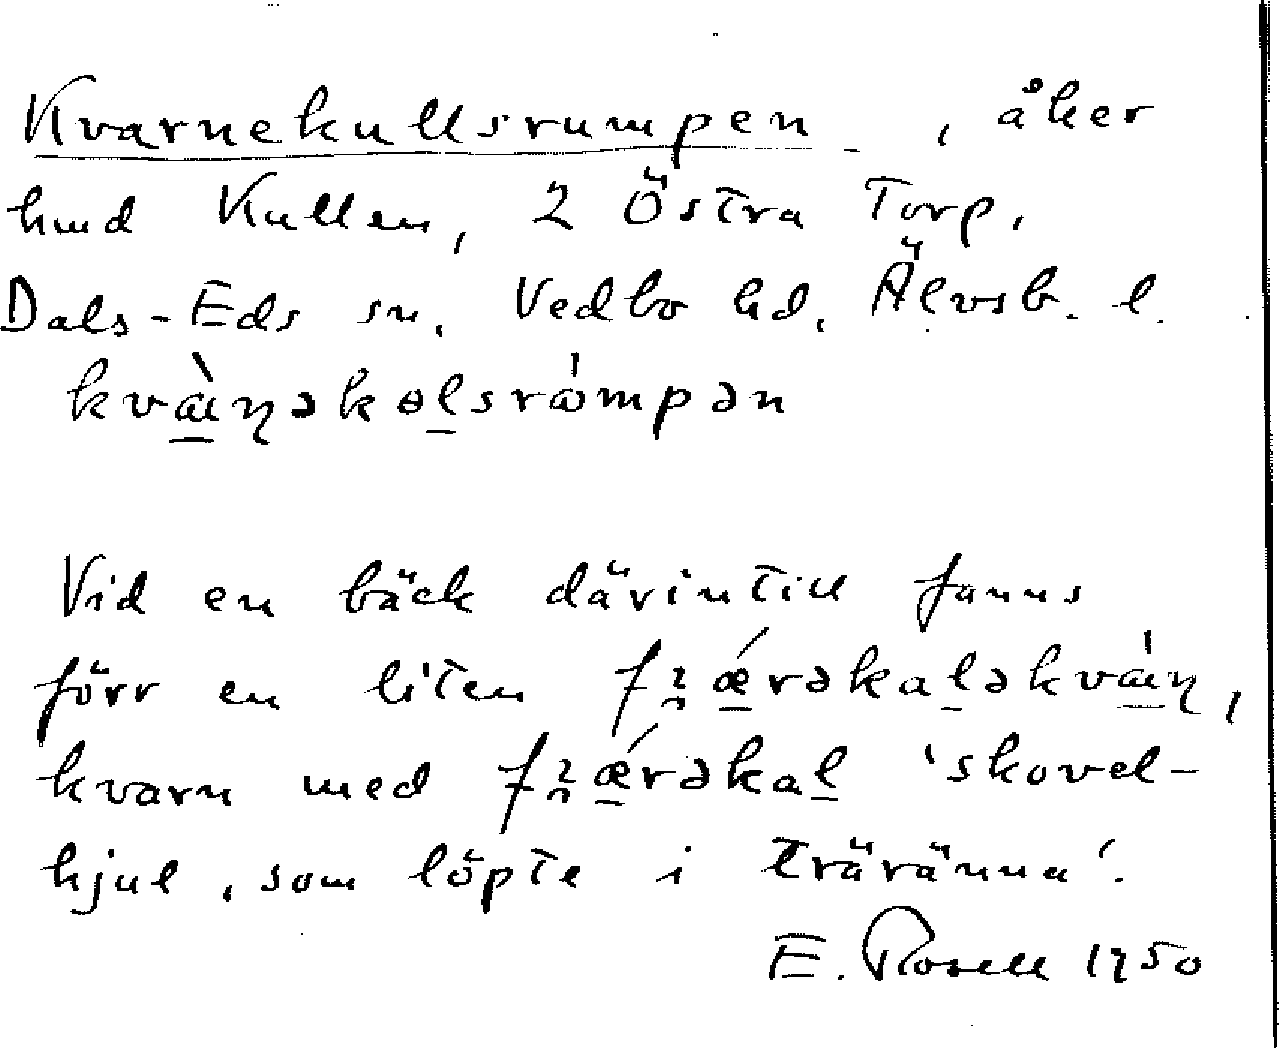 Kvarnekullsrumpen, åker
hmd Kullen, 2 Östra Torp,
Dals-Eds sn, Vedbo hd, Älvsb. l.
kvàɳəkolsrómpən
Vid en bäck därintill fanns
förr en liten fɽǽrəkaləkváɳ,
kvarn med fɽǽrəkal 'skovel-
hjul, som löpte i träränna'.
E. Rosell 1950